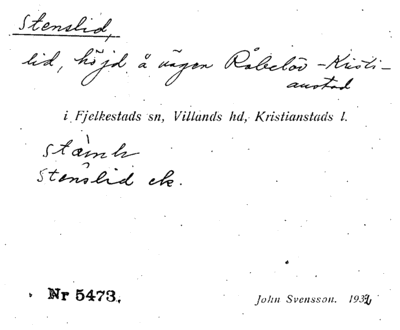 Stenslid,
lid, höjd å vägen Råbelöv - Kristi-
anstad
i Fjelkestads sn, Villands hd, Kristianstads l.
Stenslid ek.
Nr 5473.
John Svensson. 1932